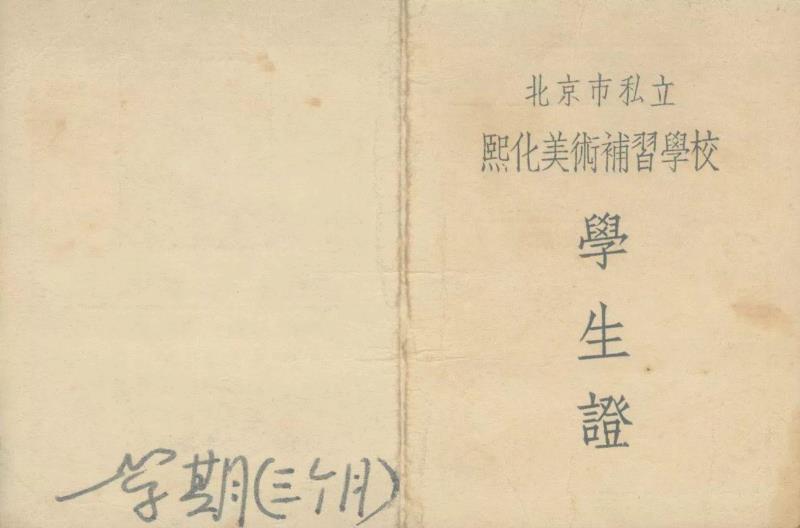 北京市私立
熙化美術補習學校
學
生
證
一学期(三个月)